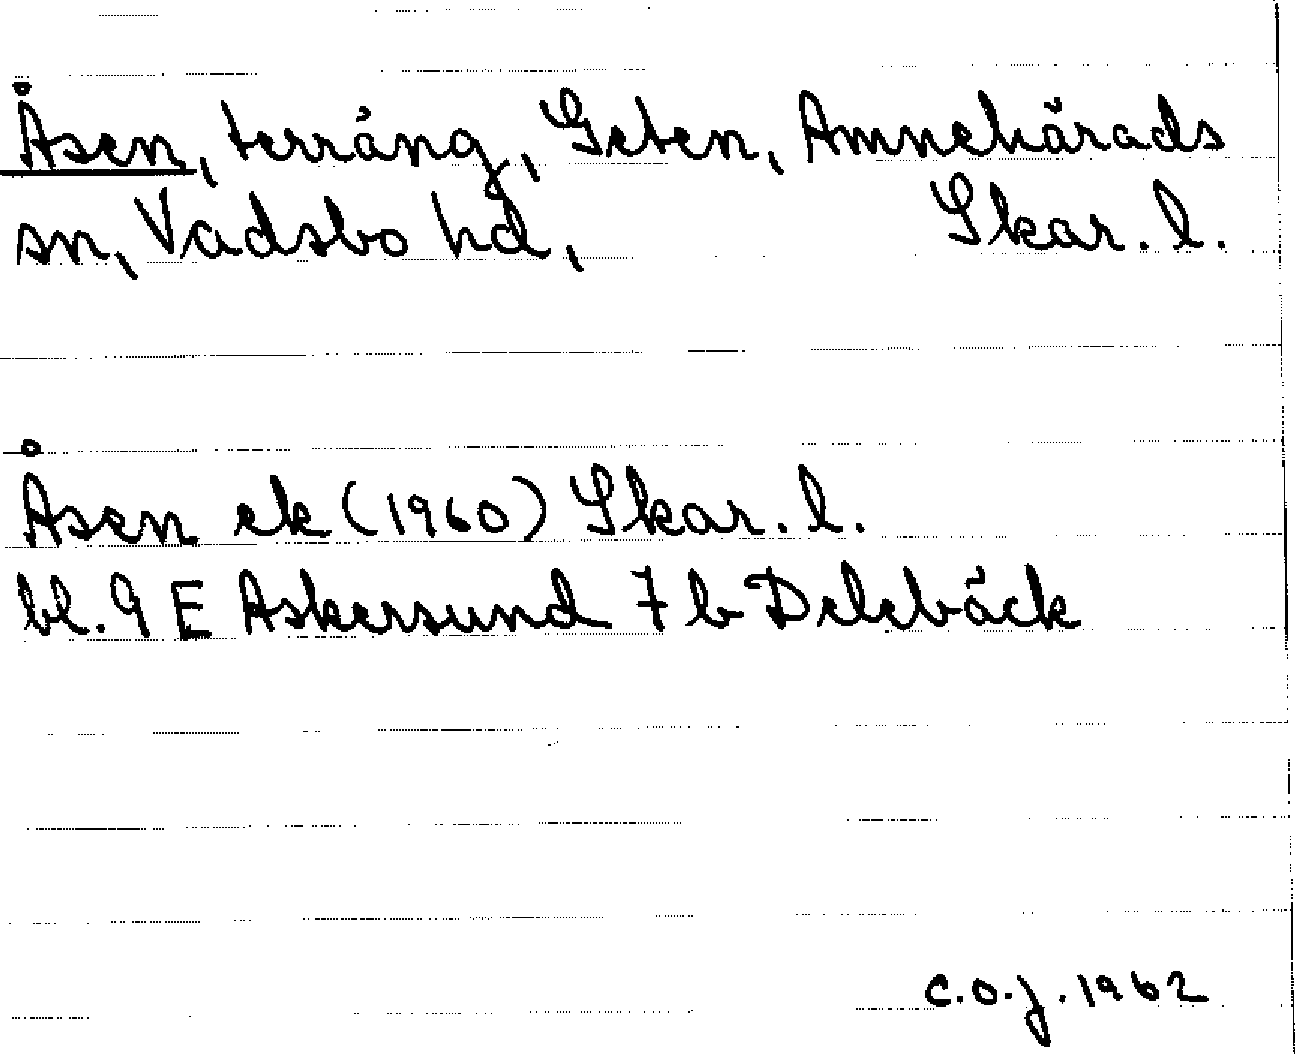 Åsen, terräng, Geten, Amnehärads
sn, Vadsbo hd, Skar. l.
Åsen ek (1960) Skar. l.
bl. 9 E Askersund 7 b Delebäck
C.O.J. 1962